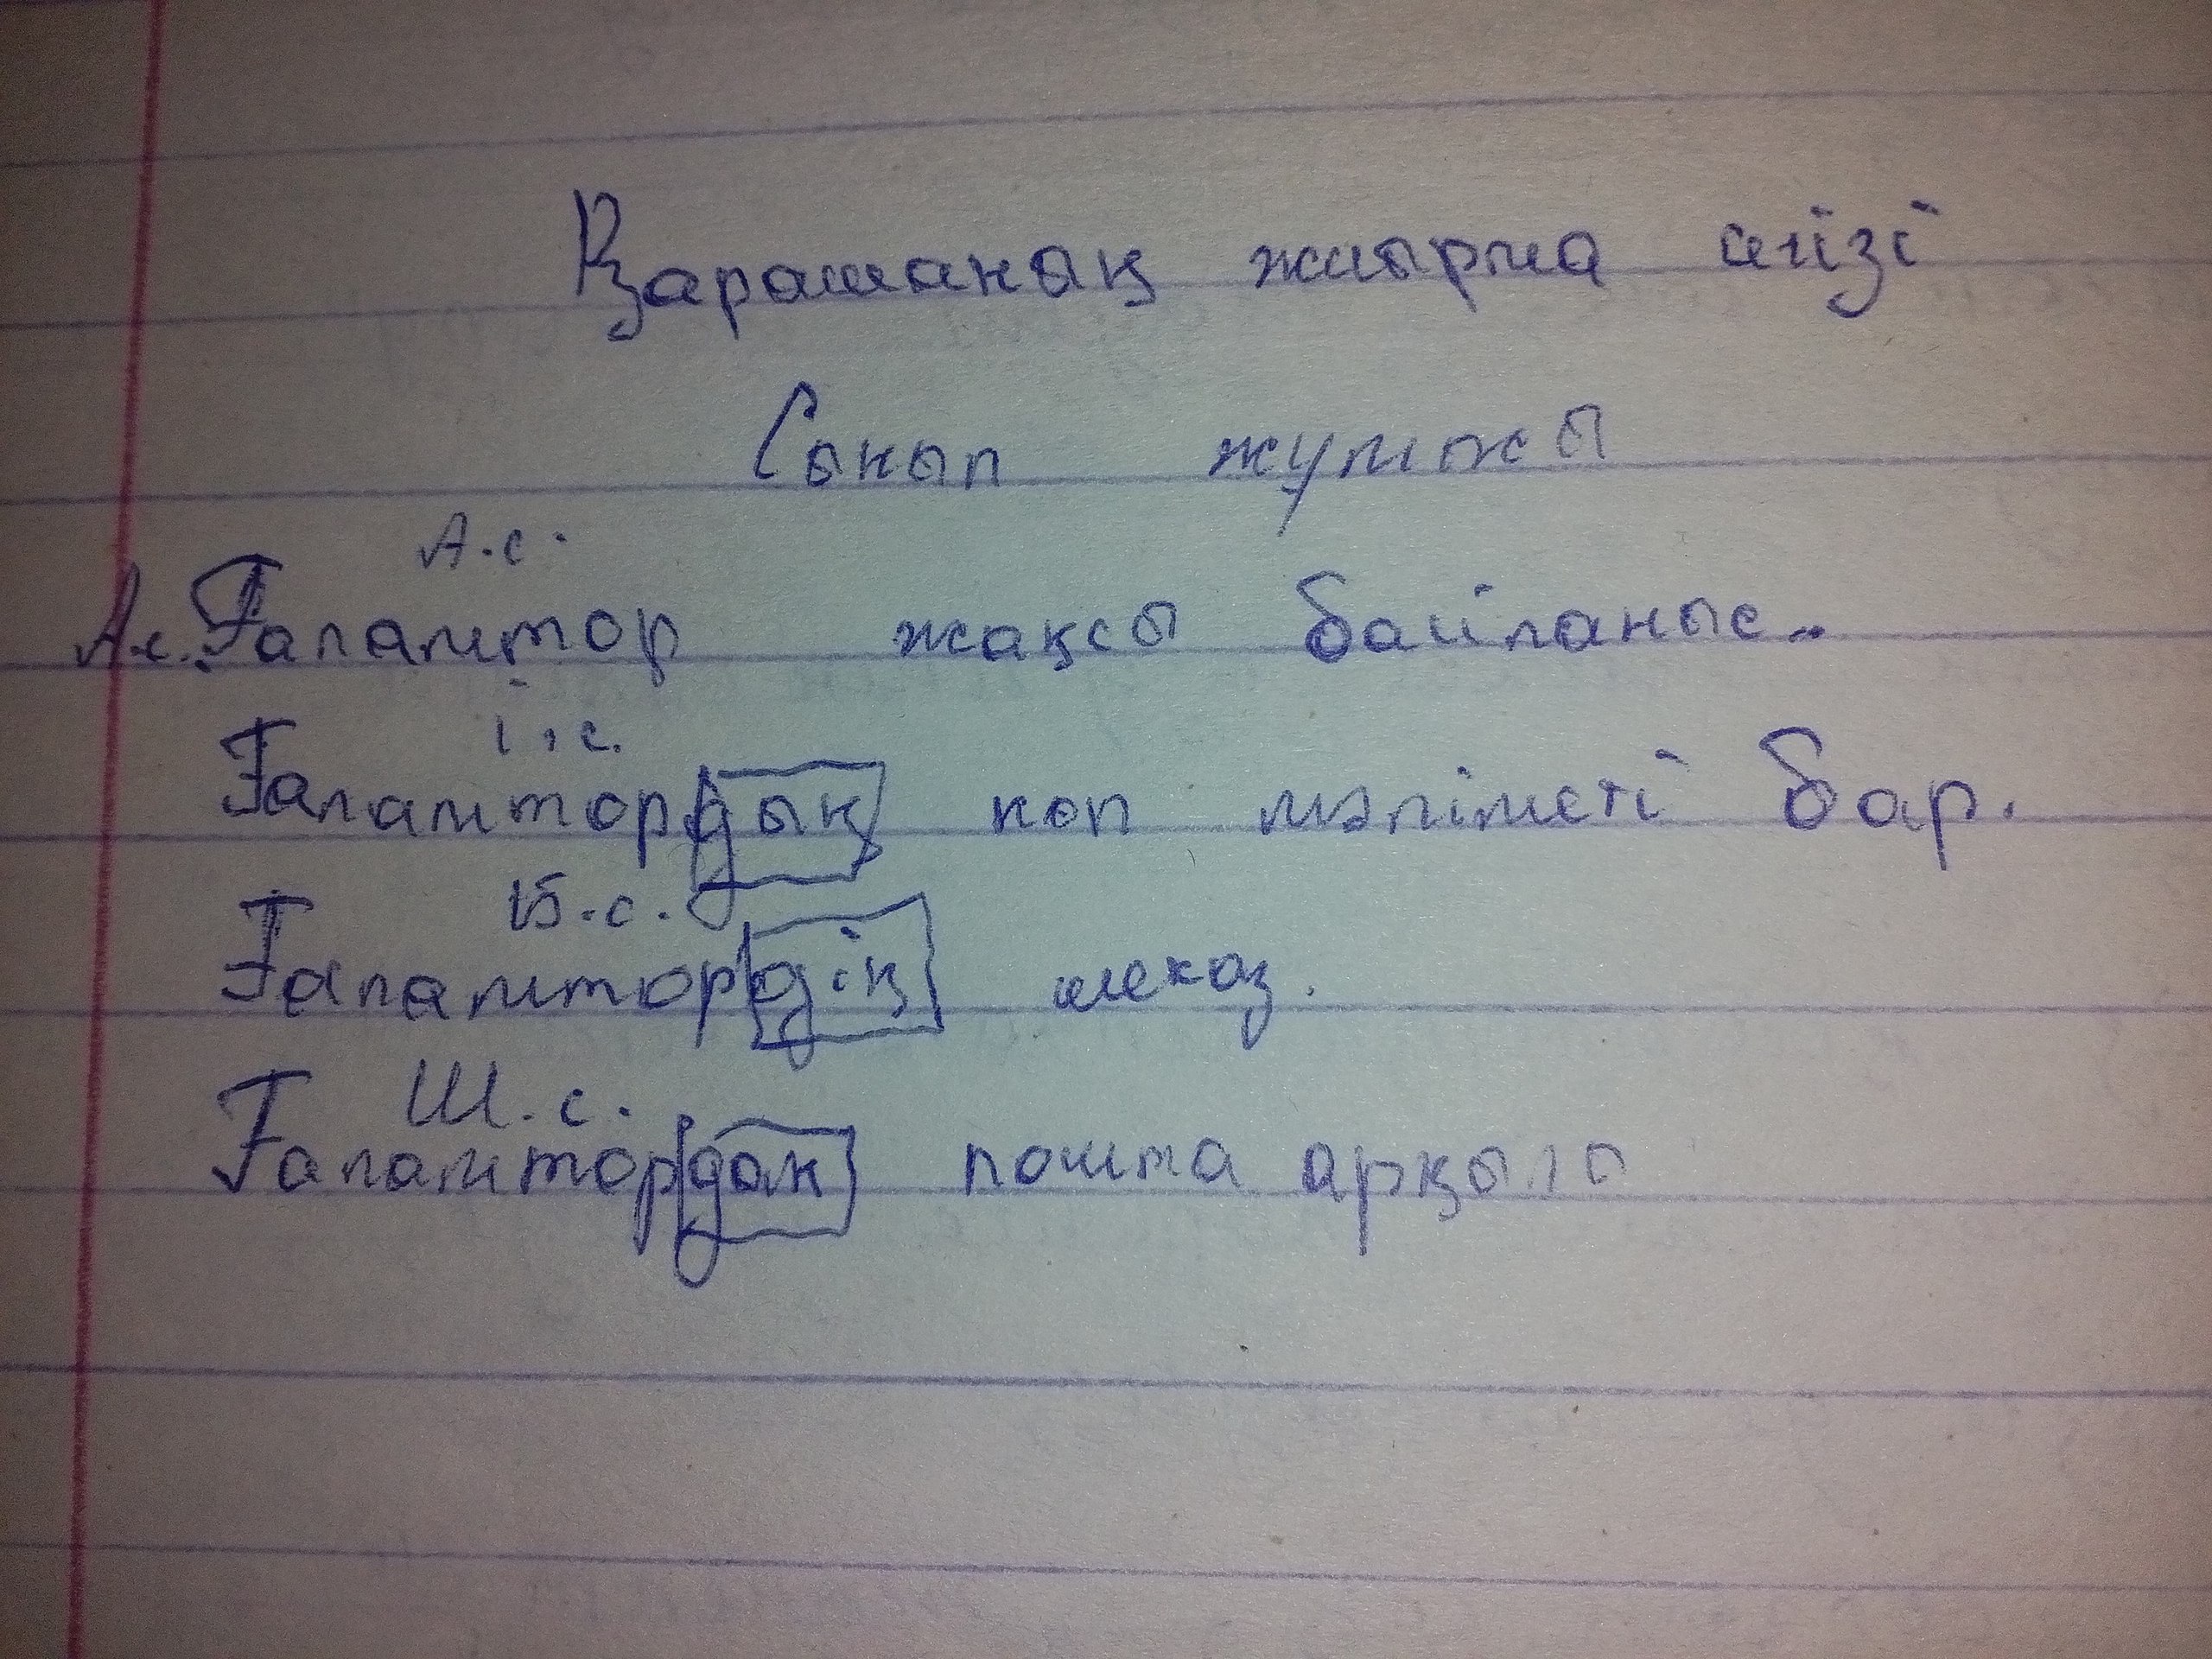 Қарашаның жиырма сегізі
Сынып жұмысы
А.с.
А.с. Ғаламтор жақсы байланыс.
І.с.
Ғаламтордың көп мәліметі бар.
Б.с.
Ғаламтордің
Ш.с.
Ғаламтордан пошта арқылы